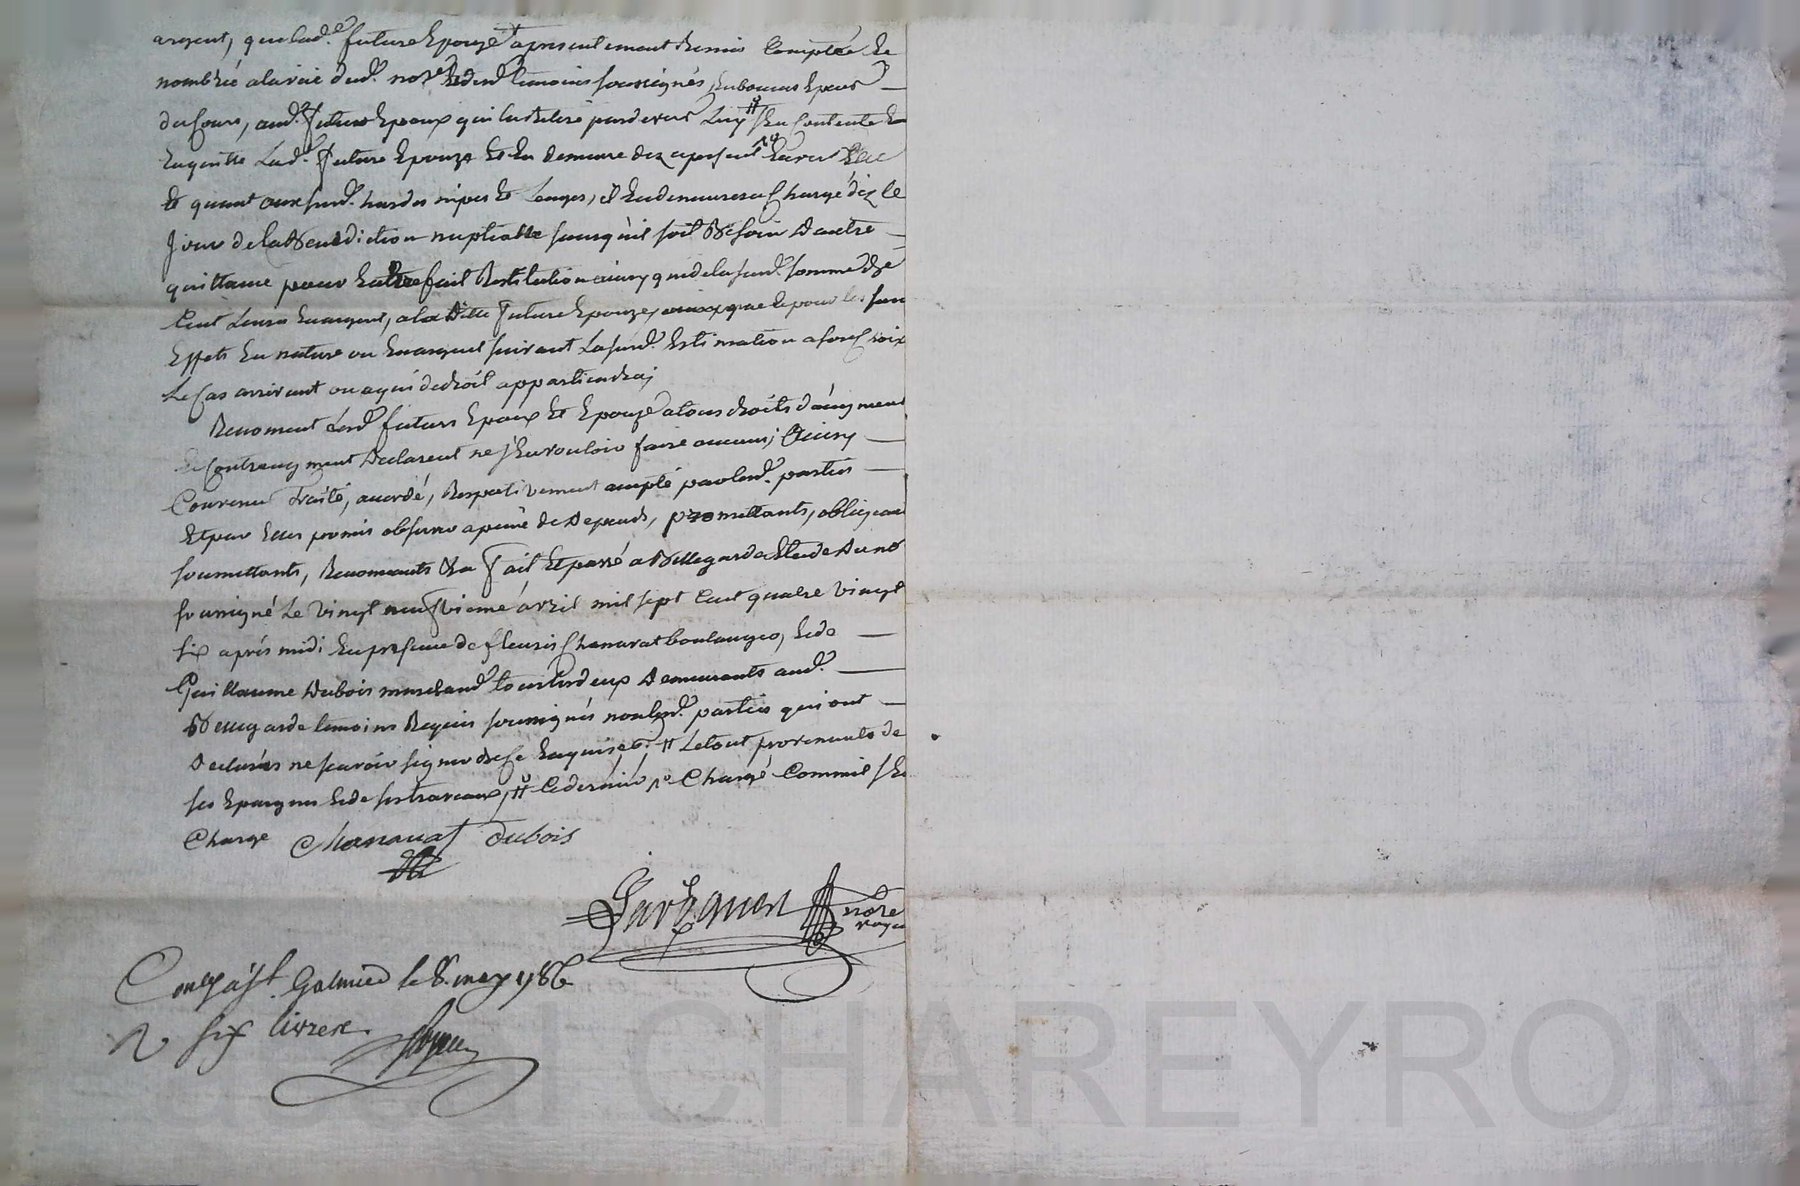 argent, que lad.e future Epouze a presentement Remis Comptée Et
nombrée a la vüe dud. no.re Et desd. temoins soussignés, En bonnes Especes
du Cours, aud. futur Epoux qui l'a Retiré pardevers Luy # S'En Contente En
Enquitte Lad. future Epouze Et En demeure dez apresent Envers Elle
Et quant aux susd. hardes nipes Et Linges, il En demeurera Chargé déz le
Jour de la Benediction nuptialle sans qu'il soit Besoin D'autre
quittance pour En Etre fait Restitution ainsy que de la susd. somme de
Cent Livres En argent, a la ditte future Epouze, pour les sus
Effets En nature ou En argent suivant La susd. Estimation a son Choix
Le Cas arrivant ou a qui de droit appartiendra;
Renoncent Lesd. futurs Epoux Et Epouze a tous droits d'augment
Et Contreaugment Declarent ne s'En vouloir faire aucuns; Ainsy
Convenu Traité, accordé, Respectivement accepté par lesd. parties
Et par Elles promis observer a peine de Depends, promettants, obligeant
soumettants, Renonceants &a fait Et passé a Bellegarde Etude Du no.re
soussigné Le vingt neufvieme avril mil sept Cent quatre vingt
six aprés midi En presence de fleuris Chanavat boulanger, Et de
Guillaume Dubois marchand tous les deux Demeurants aud.
Bellegarde temoins Requis soussignés non lesd. parties qui ont
Declarés ne sçavoir signer de ce Enquises; # Le tout provenants de
ses Epargnes Et de ses travaux, # Ce dernier Chargé Commil s'En
Charge Chanavat Dubois
no.re
royal
Con.lé a S.t Galmier le 8. may 1786
R. six livres
CHAREYRON